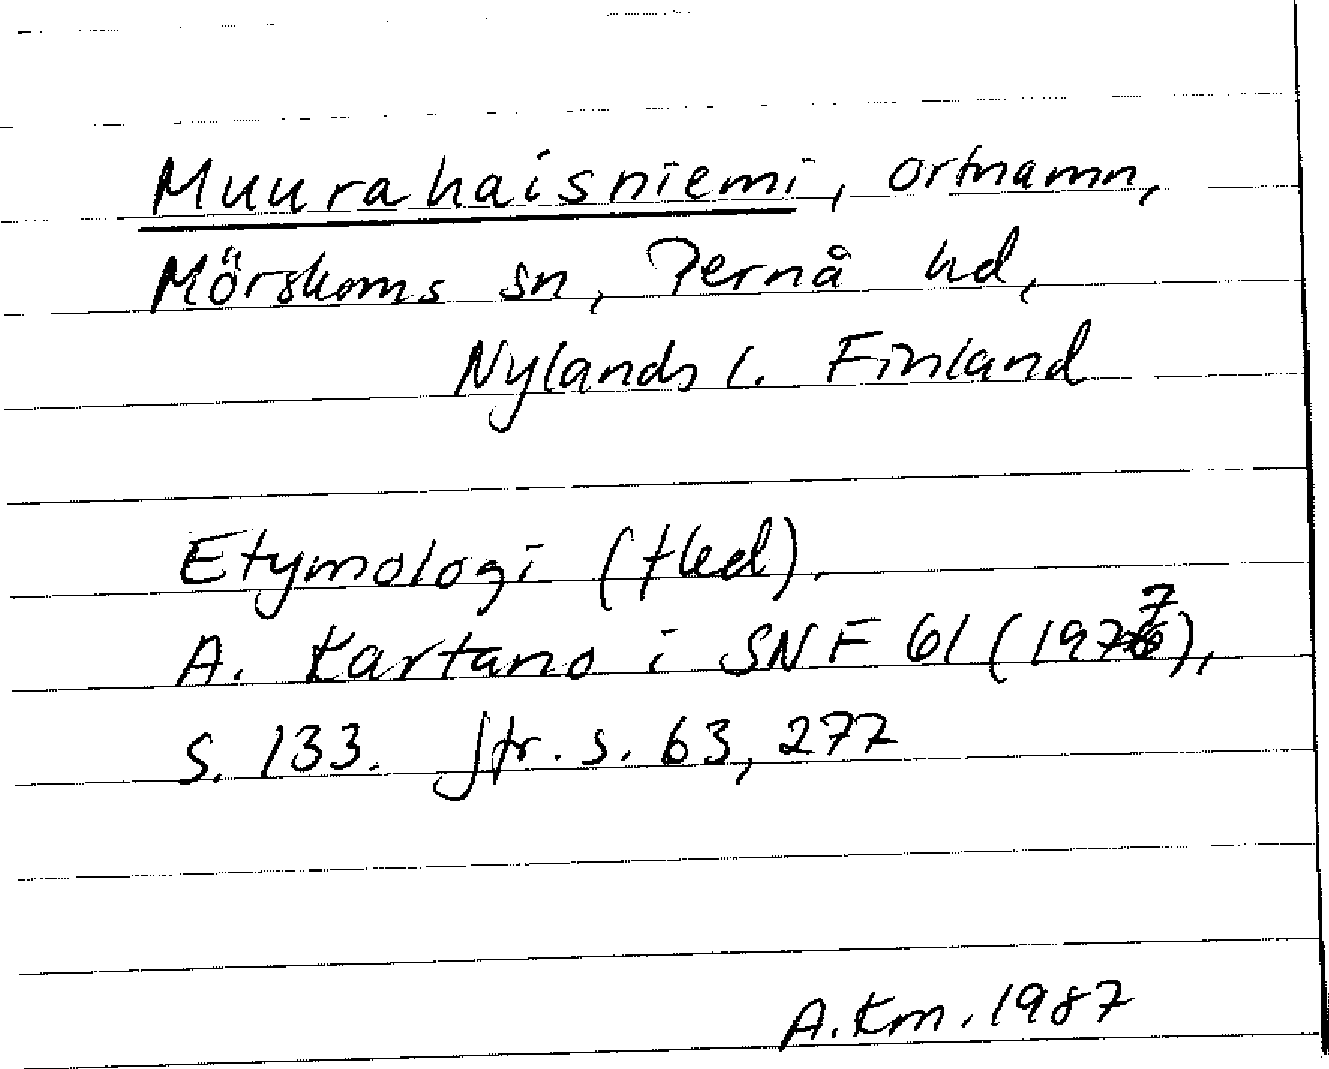 Muurahaisniemi, ortnamn,
Mörskoms sn, Pernå hd,
Nylands l. Finland
Etymologi (fled).
A. Kartano i SNF 61 (1977),
S. 133. Jfr. s. 63, 277
A.Km. 1987